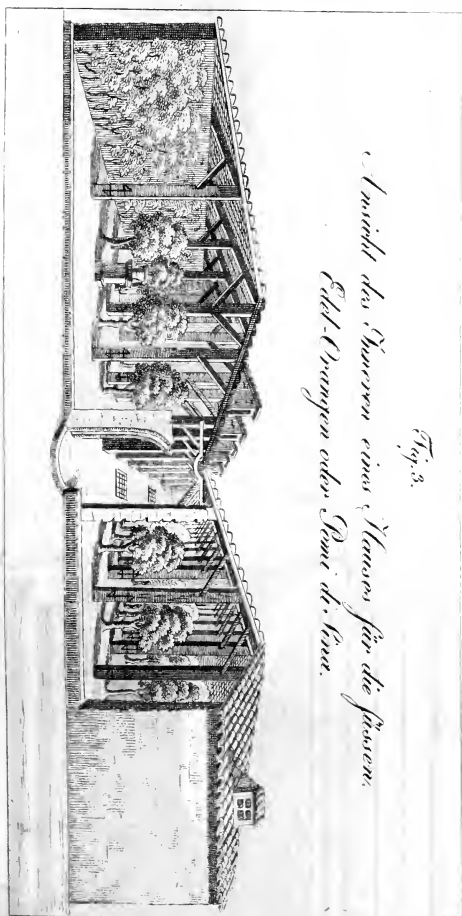 Fig. 3.
Ansicht des Inneren eines Hauses für die süssen.
Edel-Orangen oder Pomi di Sina.